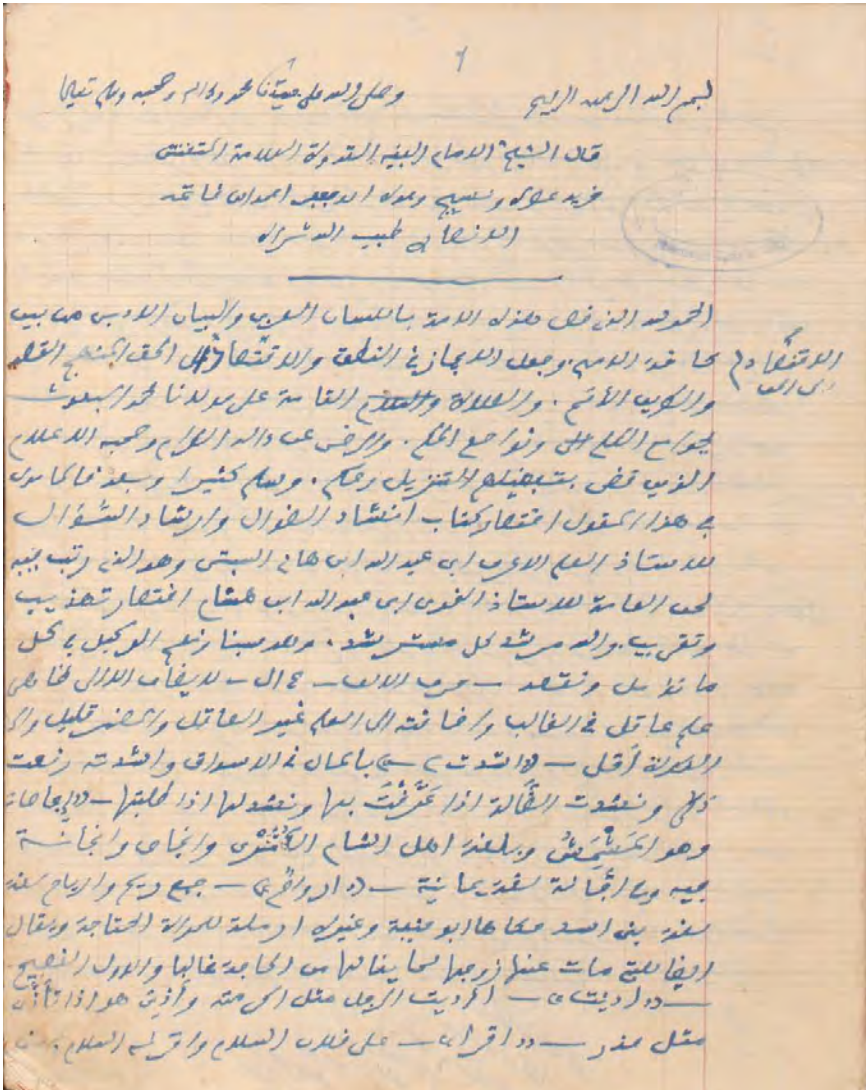 بسم الله الرحمن الرحيم وصلى الله على سيدنا محمد وآله وصحبه وسلم تسليما
قال الشيخ الامام الفقيه القدوة العلامة المتفنن
فريد عصره ونسيج وحده ابو جعفر احمد ابن خاتمة
الانصاري طيب الله ثراه
الحمد لله الذي خص هذه الامة باللسان العربي والبيان من بين
كافة الامم. وجعل الايجاز في النطق والاقتصار الحق المنهج القصد
والطريق الأمَم. والصلاة والسلام التامة على مولانا محمد المبعوث
بجوامع الكلم ونواجع الحكم. والرضى عن آله الكرام وصحبه الاعلام
الذين قضى بتفضيلهم التنزيل وحكم. وسلم كثيرا وبعد
في هذا المقول اختصار كتاب انشاد الضوال وارشاد السُّؤال
للاستاذ العلم الاعرف ابي عبد الله ابن هاني السبتي وهو الذي رتب فيه
لحن العامة للاستاذ اللغوي ابي عبد الله ابن هشام اختصار تهذيب
وتقريب. والله مرشد كل مسترشد. وهو حسبنا ونعم الوكيل في كل
ما ونقصد — حرف الالف — ء ال — لا يضاف الا الى خاص
علم عاقل في الغالب واضافته الى العلم غير العاقل والمضمر قليل والى
النكرة أقل — بالمال في الاسواق وانشدته رفعت
ونشدت الضَّالة اذا عَرَّفْتَ بها ونشدتها اذا طلبتها —
وهو المِشْمِشُ وبلغة اهل الشام الكُمَّثْرى وانجاص وانجانة
لغة يمانية — — جمع ريح والارياح لغة
لغة بني اسد حكاها ابو حنيفة وغيره ارملة للمرأة المحتاجة ويقال
ايضا للتي مات عنها زوجها لما ينالها من الحاجة غالبا والاول الفصيح
— — الرجل مثل وأذِيَ هو اذا تأذَّى
مثل حذر — اقرأ — على فلان السلام السلام
الاقتصار